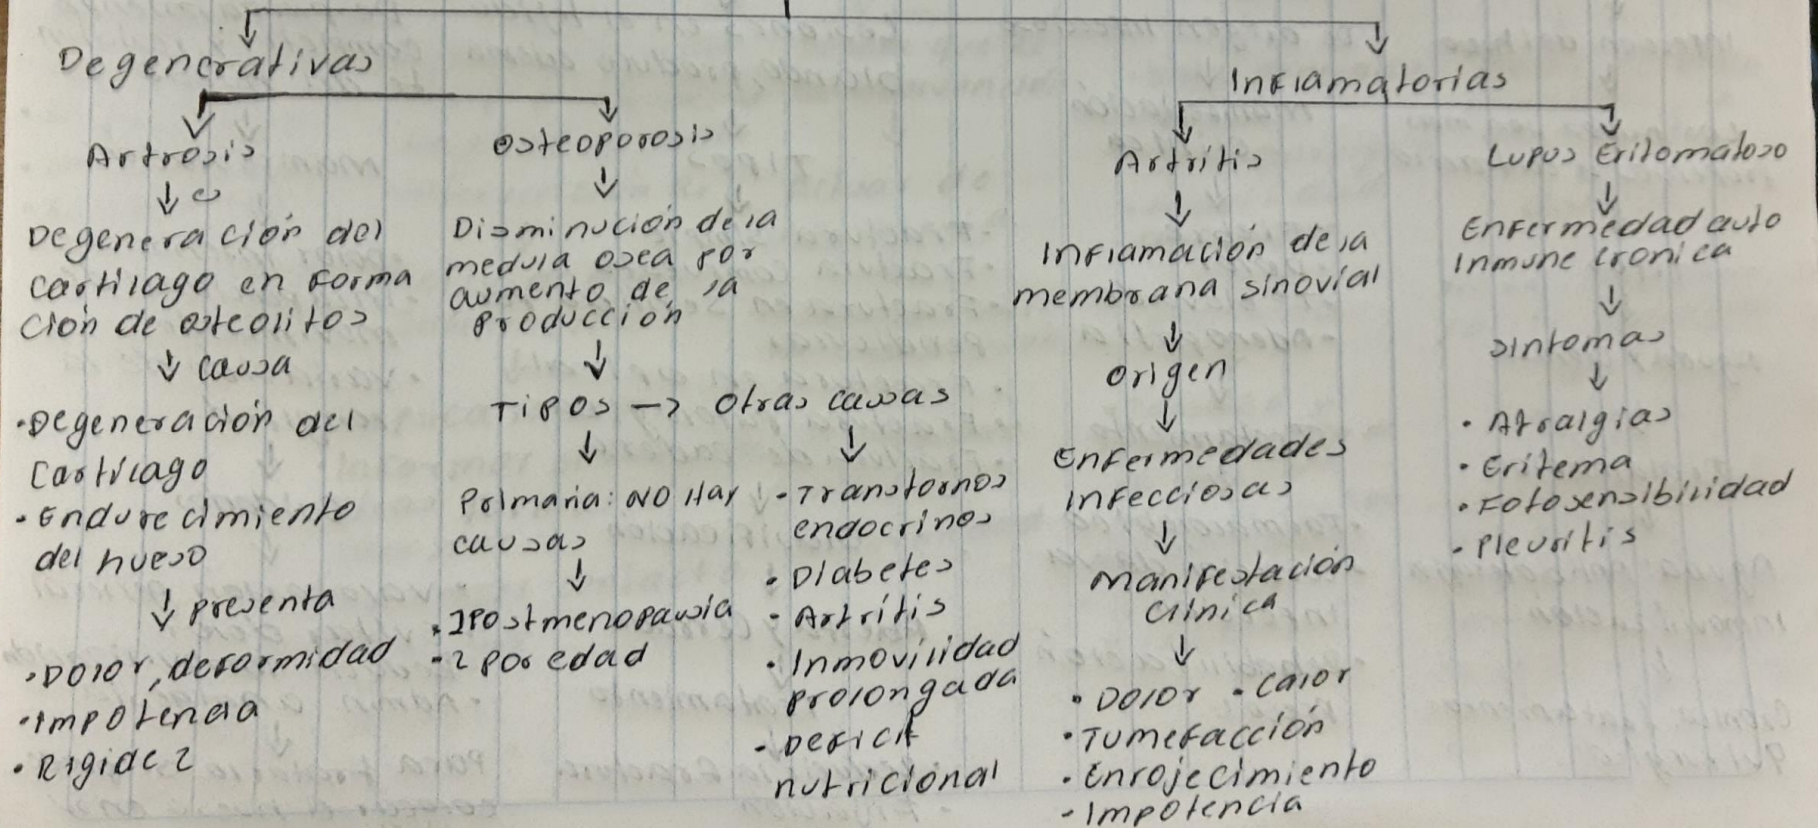 Degenerativas
Artrosis
Degeneración del
cartilago en forma
ción de osteolitos
causa
• Degeneración del
cartilago
• Endurecimiento
del hueso
presenta
• Dolor, deformidad
• Impotencia
• Rigidez
Osteoporosis
Disminución de la
medula osea por
aumento de la
producción
Tipos → Otras causas
Primaria: NO Hay
causas
• 1 Postmenopausia
• 2 por edad
• Transtornos
endocrinos
• Diabetes
• Artritis
• Inmovilidad
prolongada
• Deficit
nutricional
Inflamatorias
Artritis
Inflamación de la
membrana sinovial
Origen
Enfermedades
infecciosas
Manifestación
clinica
• Dolor • Calor
• Tumefacción
• Enrojecimiento
• Impotencia
Lupus Eritomatoso
Enfermedad auto
inmune cronica
sintomas
• Atralgias
• Eritema
• Fotosensibilidad
• Pleuritis